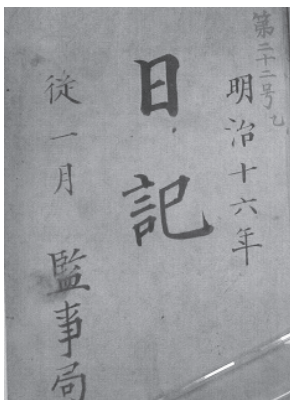 第二十二号乙
明治十六年
日記
従一月
監事局